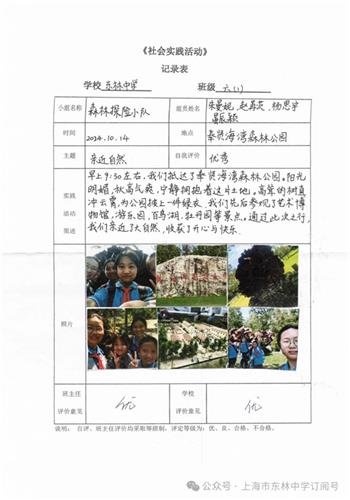 《社会实践活动》
记录表
学校 东林中学 班级 六(1)
小组名称 森林探险小队 组员姓名 朱曼妮,赵苒苂,杨思宇
时间 2024.10.14 地点 奉贤海湾森林公园
主题 亲近自然 自我评价 优秀
实践活动简述
早上9:30左右,我们抵达了奉贤海湾森林公园。阳光
明媚,秋高气爽,宁静拥抱着这片土地。高耸的树直
冲云霄,为公园披上一件绿衣。我们先后参观了艺术博
物馆,游乐园,百鸟湖,牡丹园等景点。通过此次之行,
我们亲近了大自然,收获了开心与快乐.
照片
班主任评价意见 优 学校评价意见 优
说明: 自评、班主任评价均采取等级制,评定等级为:优、良、合格、不合格。
公众号·上海市东林中学订阅号